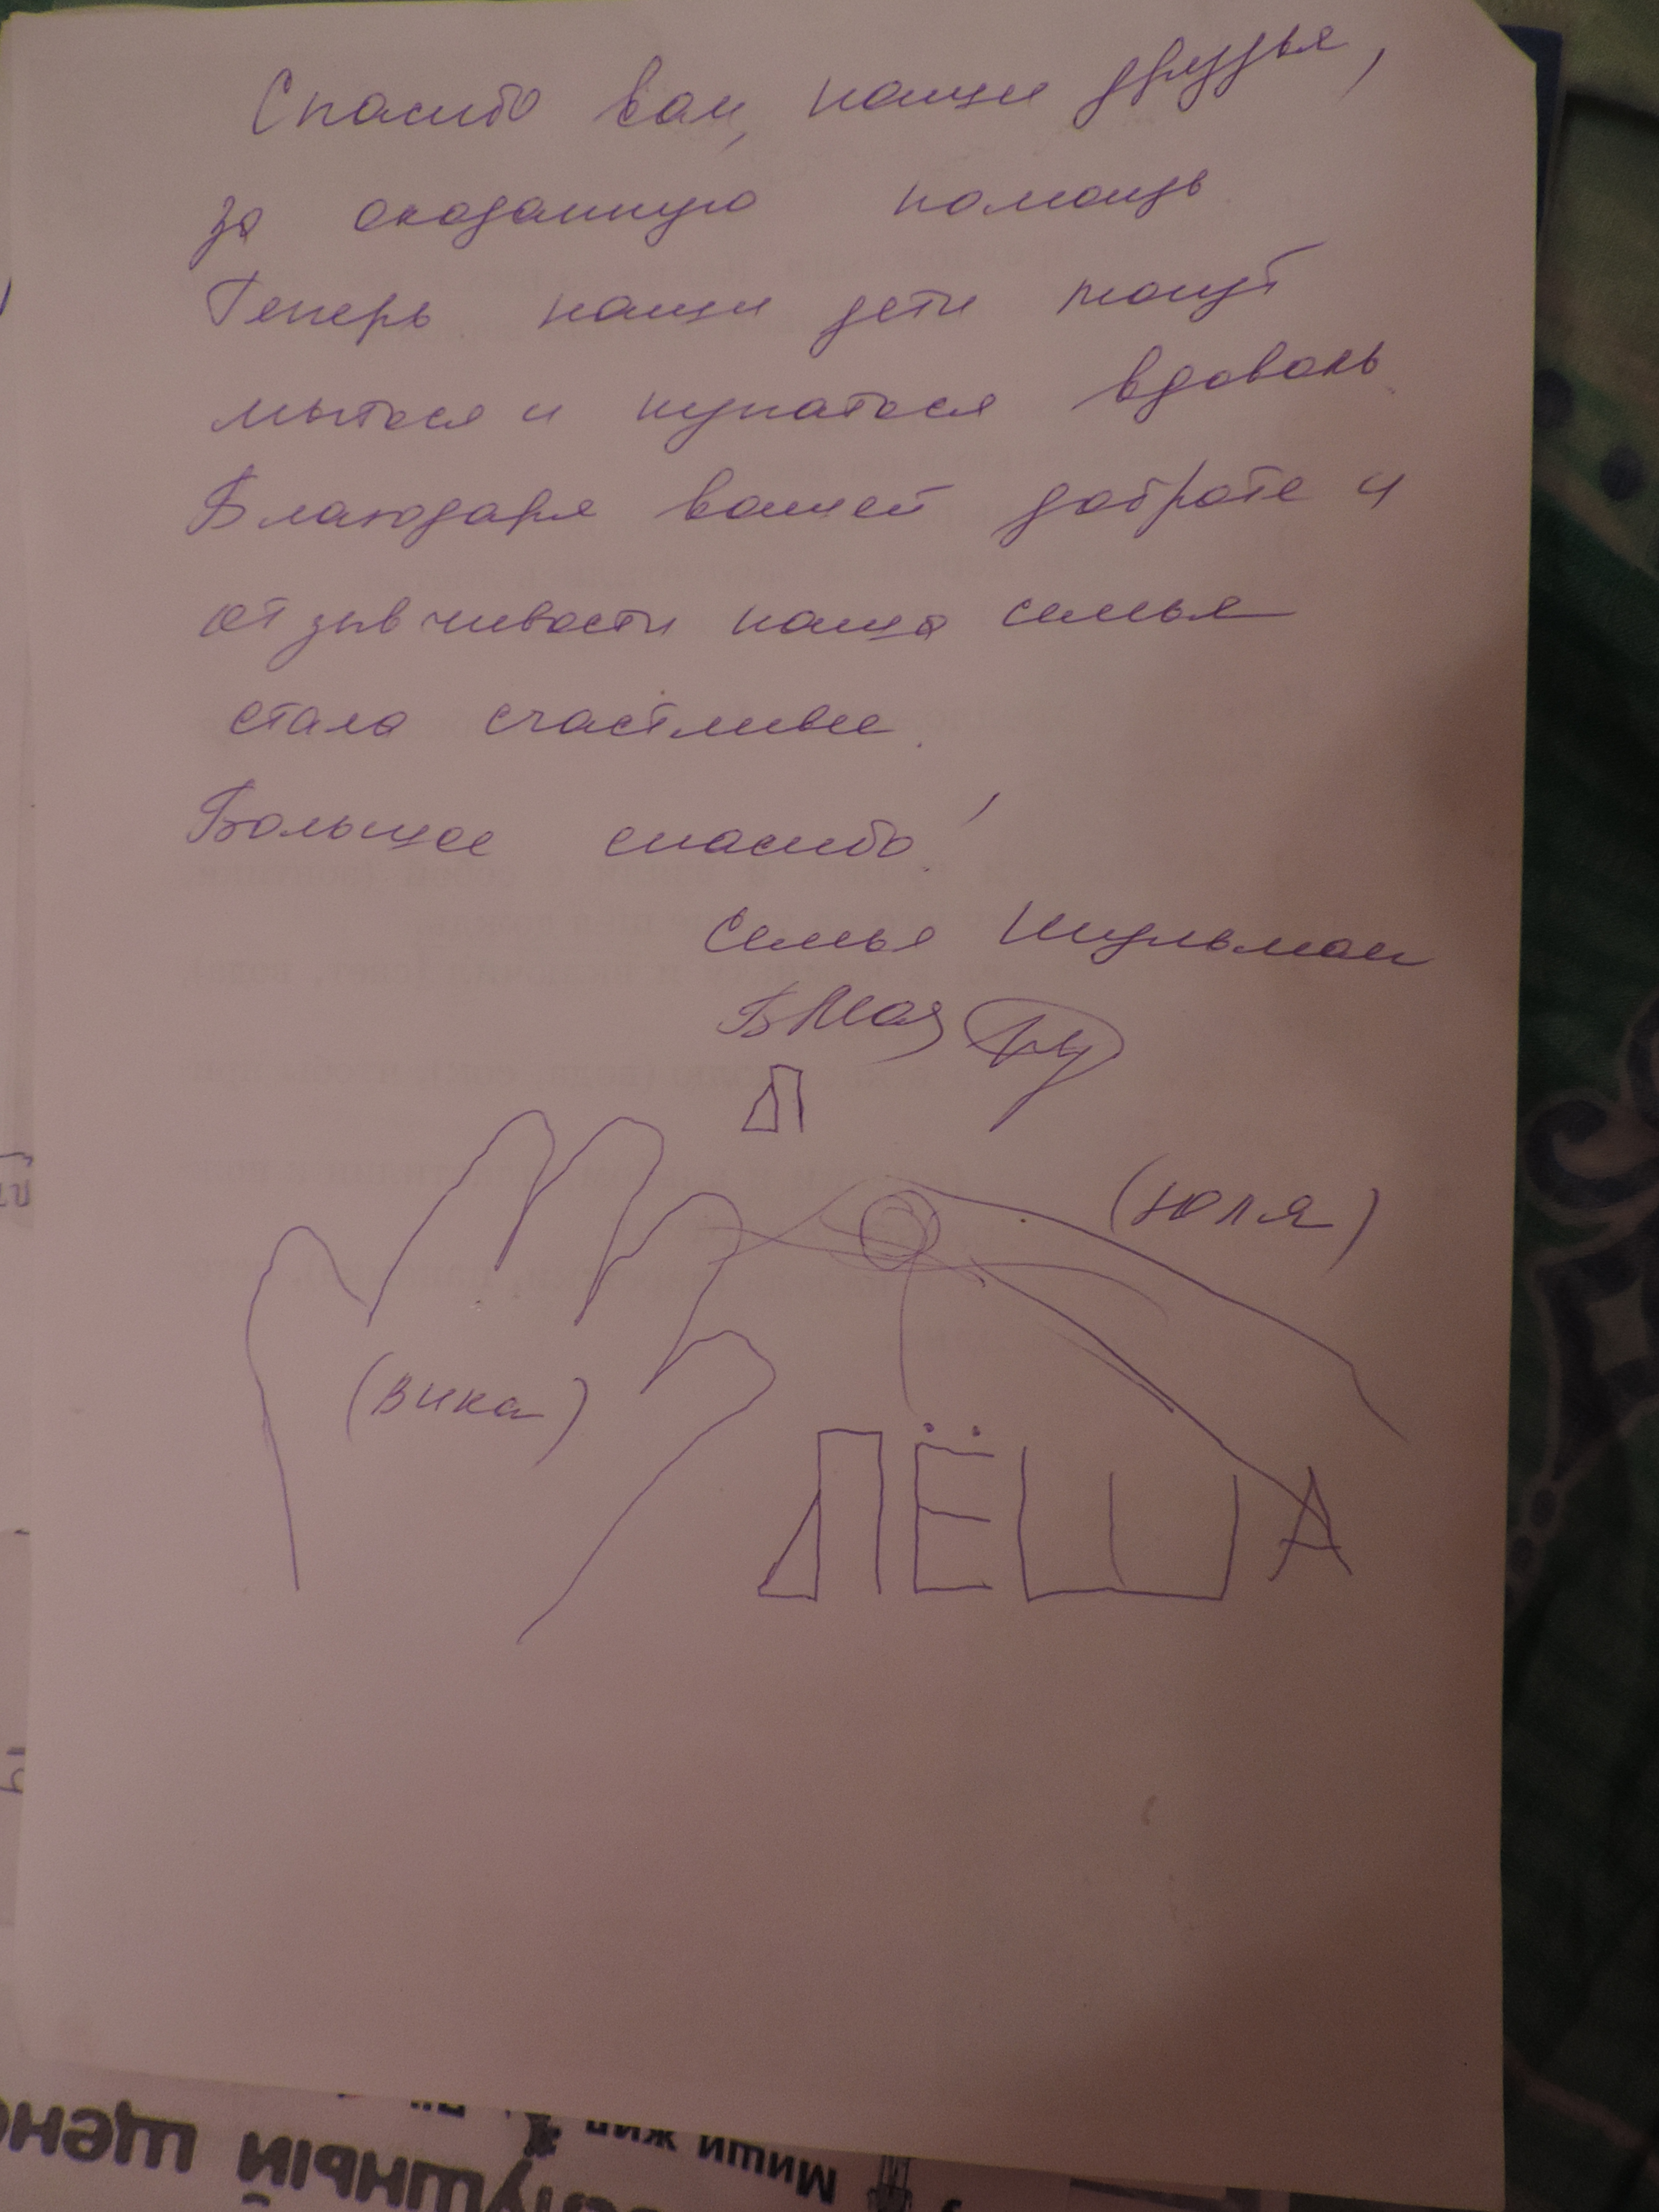 Спасибо вам, наши друзья,
за оказанную помощь
Теперь наши дети могут
мыться и купаться вдоволь
Благодаря вашей доброте и
отзывчивости наша семья
стала счастливее.
Большое спасибо!
Семья Шульман
Л
(юля)
(вика)
ЛЁША
Миши жил
ушный щено